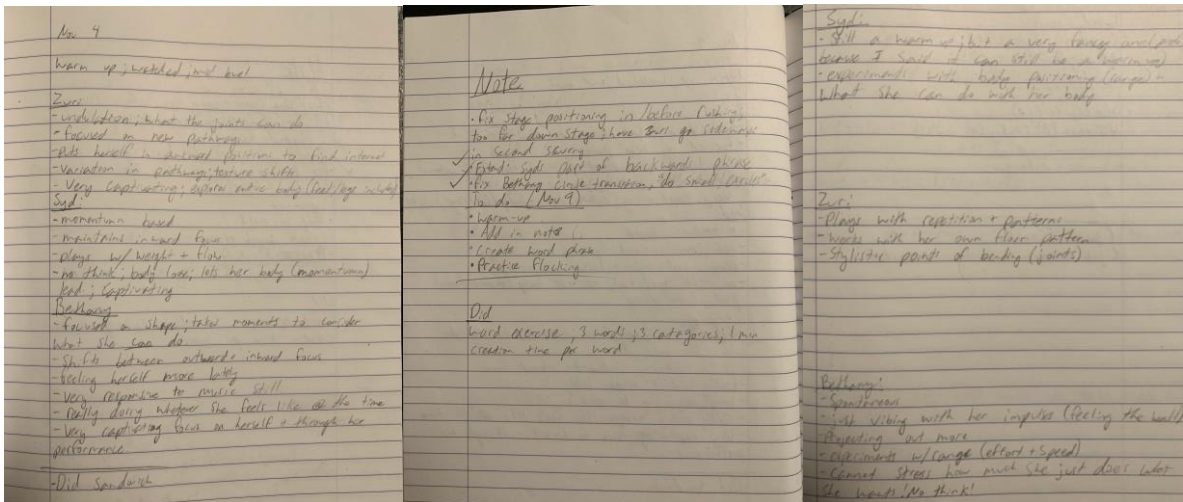 Nov 4
Warm up; watched; mid level
Zuri
- undulation; what the joints can do
- focused on new pathways
- puts herself in awkward positions to find interest
- Variation in pathways; texture shifts
- Very captivating; explores entire body (feet/legs included)
Syd:
- momentum based
- maintains inward focus
- plays w/ weight + flow
- no think; body love; lets her body (momentum)
lead; Captivating
Bethany
- focused on shape; takes moments to consider
what she can do
- Shifts between outward + inward focus
- feeling herself more lately
- Very responsive to music still
- really doing whatever she feels like @ the time
- Very captivating focus on herself + through her
performance
- Did sandwich
Note
• fix stage positioning in/before flocking;
too far down stage; have Zuri go sideways
in second
• Extend Syds part of backwards phrase
• fix Bethany circle transition, "do small circles"
To do (Nov 9)
• Warm-up
• Add in notes
• Create word phrase
• Practice flocking
Did
Word exercise; 3 words; 3 catagories; 1 min
creation time per word
Syd:
- Still a warm up; but a very fancy one
because I said it can still be a warm up)
- experiments with body positioning (range)
What she can do with her body
Zuri:
- Plays with repetition + patterns
- Works with her own floor pattern
- Stylistic points of bending (joints)
Bethany:
- Spontaneous
- just vibing with her impulses (feeling the walls)
- Projecting out more
- experiments w/ range (effort + Speed)
- Cannot stress how much she just does what
She wants! No think!